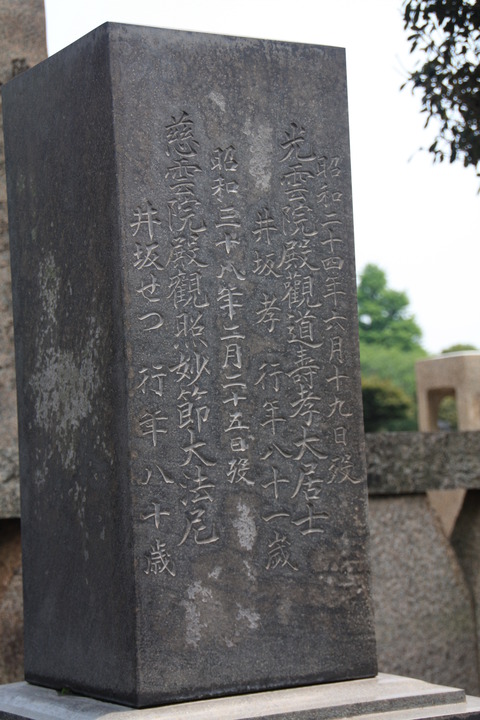 昭和二十四年六月十九日歿
光雲院殿觀道壽孝大居士
井坂孝 行年八十一歲
昭和三十八年二月二十五日歿
慈雲院殿觀照妙節大法尼
井坂せつ 行年八十歳